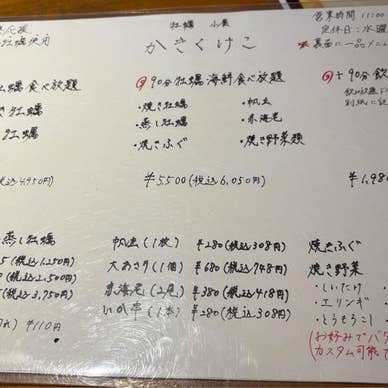 牡蠣 小屋
かきくけこ
牡蠣使用
営業時間 11:00
定休日:水曜
裏面に一品メニュ
牡蠣食べ放題
牡蠣
牡蠣
税込4,950円)
90分牡蠣海鮮食べ放題
・焼き牡蠣
・蒸し牡蠣
・焼きふぐ
・帆立
・赤海老
・焼き野菜類
¥5500(税込6,050円)
+90分飲
飲み放題
別紙に記
¥1,980
蒸し牡蠣
(税込1,250円)
(税込2,500円)
(税込3,750円)
¥110円
帆立(1枚) ¥280(税込308円)
大あさり(1個) ¥680(税込748円)
赤海老(2尾) ¥380(税込418円)
いか串(1本) ¥280(税込308円)
焼きふぐ
焼き野菜
・しいたけ
・エリンギ
・とうもろこし
(お好みでバタ
カスタム可能で